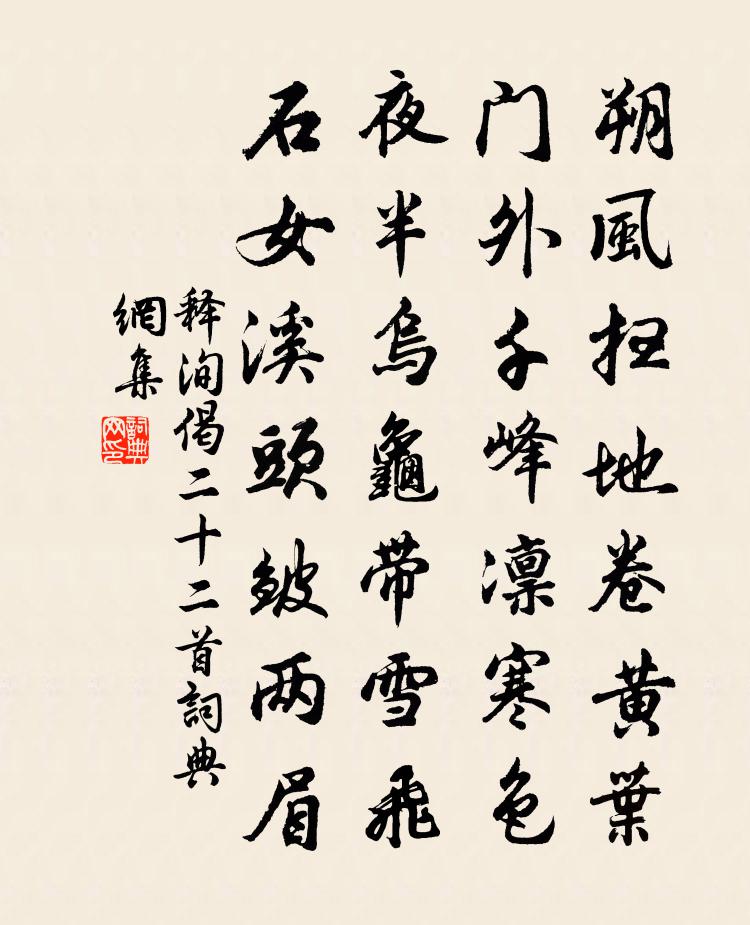 朔風扫地卷黄葉
门外千峰凛寒色
夜半烏龜带雪飛
石女溪頭皱两眉
释洵偈二十二首詞典
網集
詞典
网印